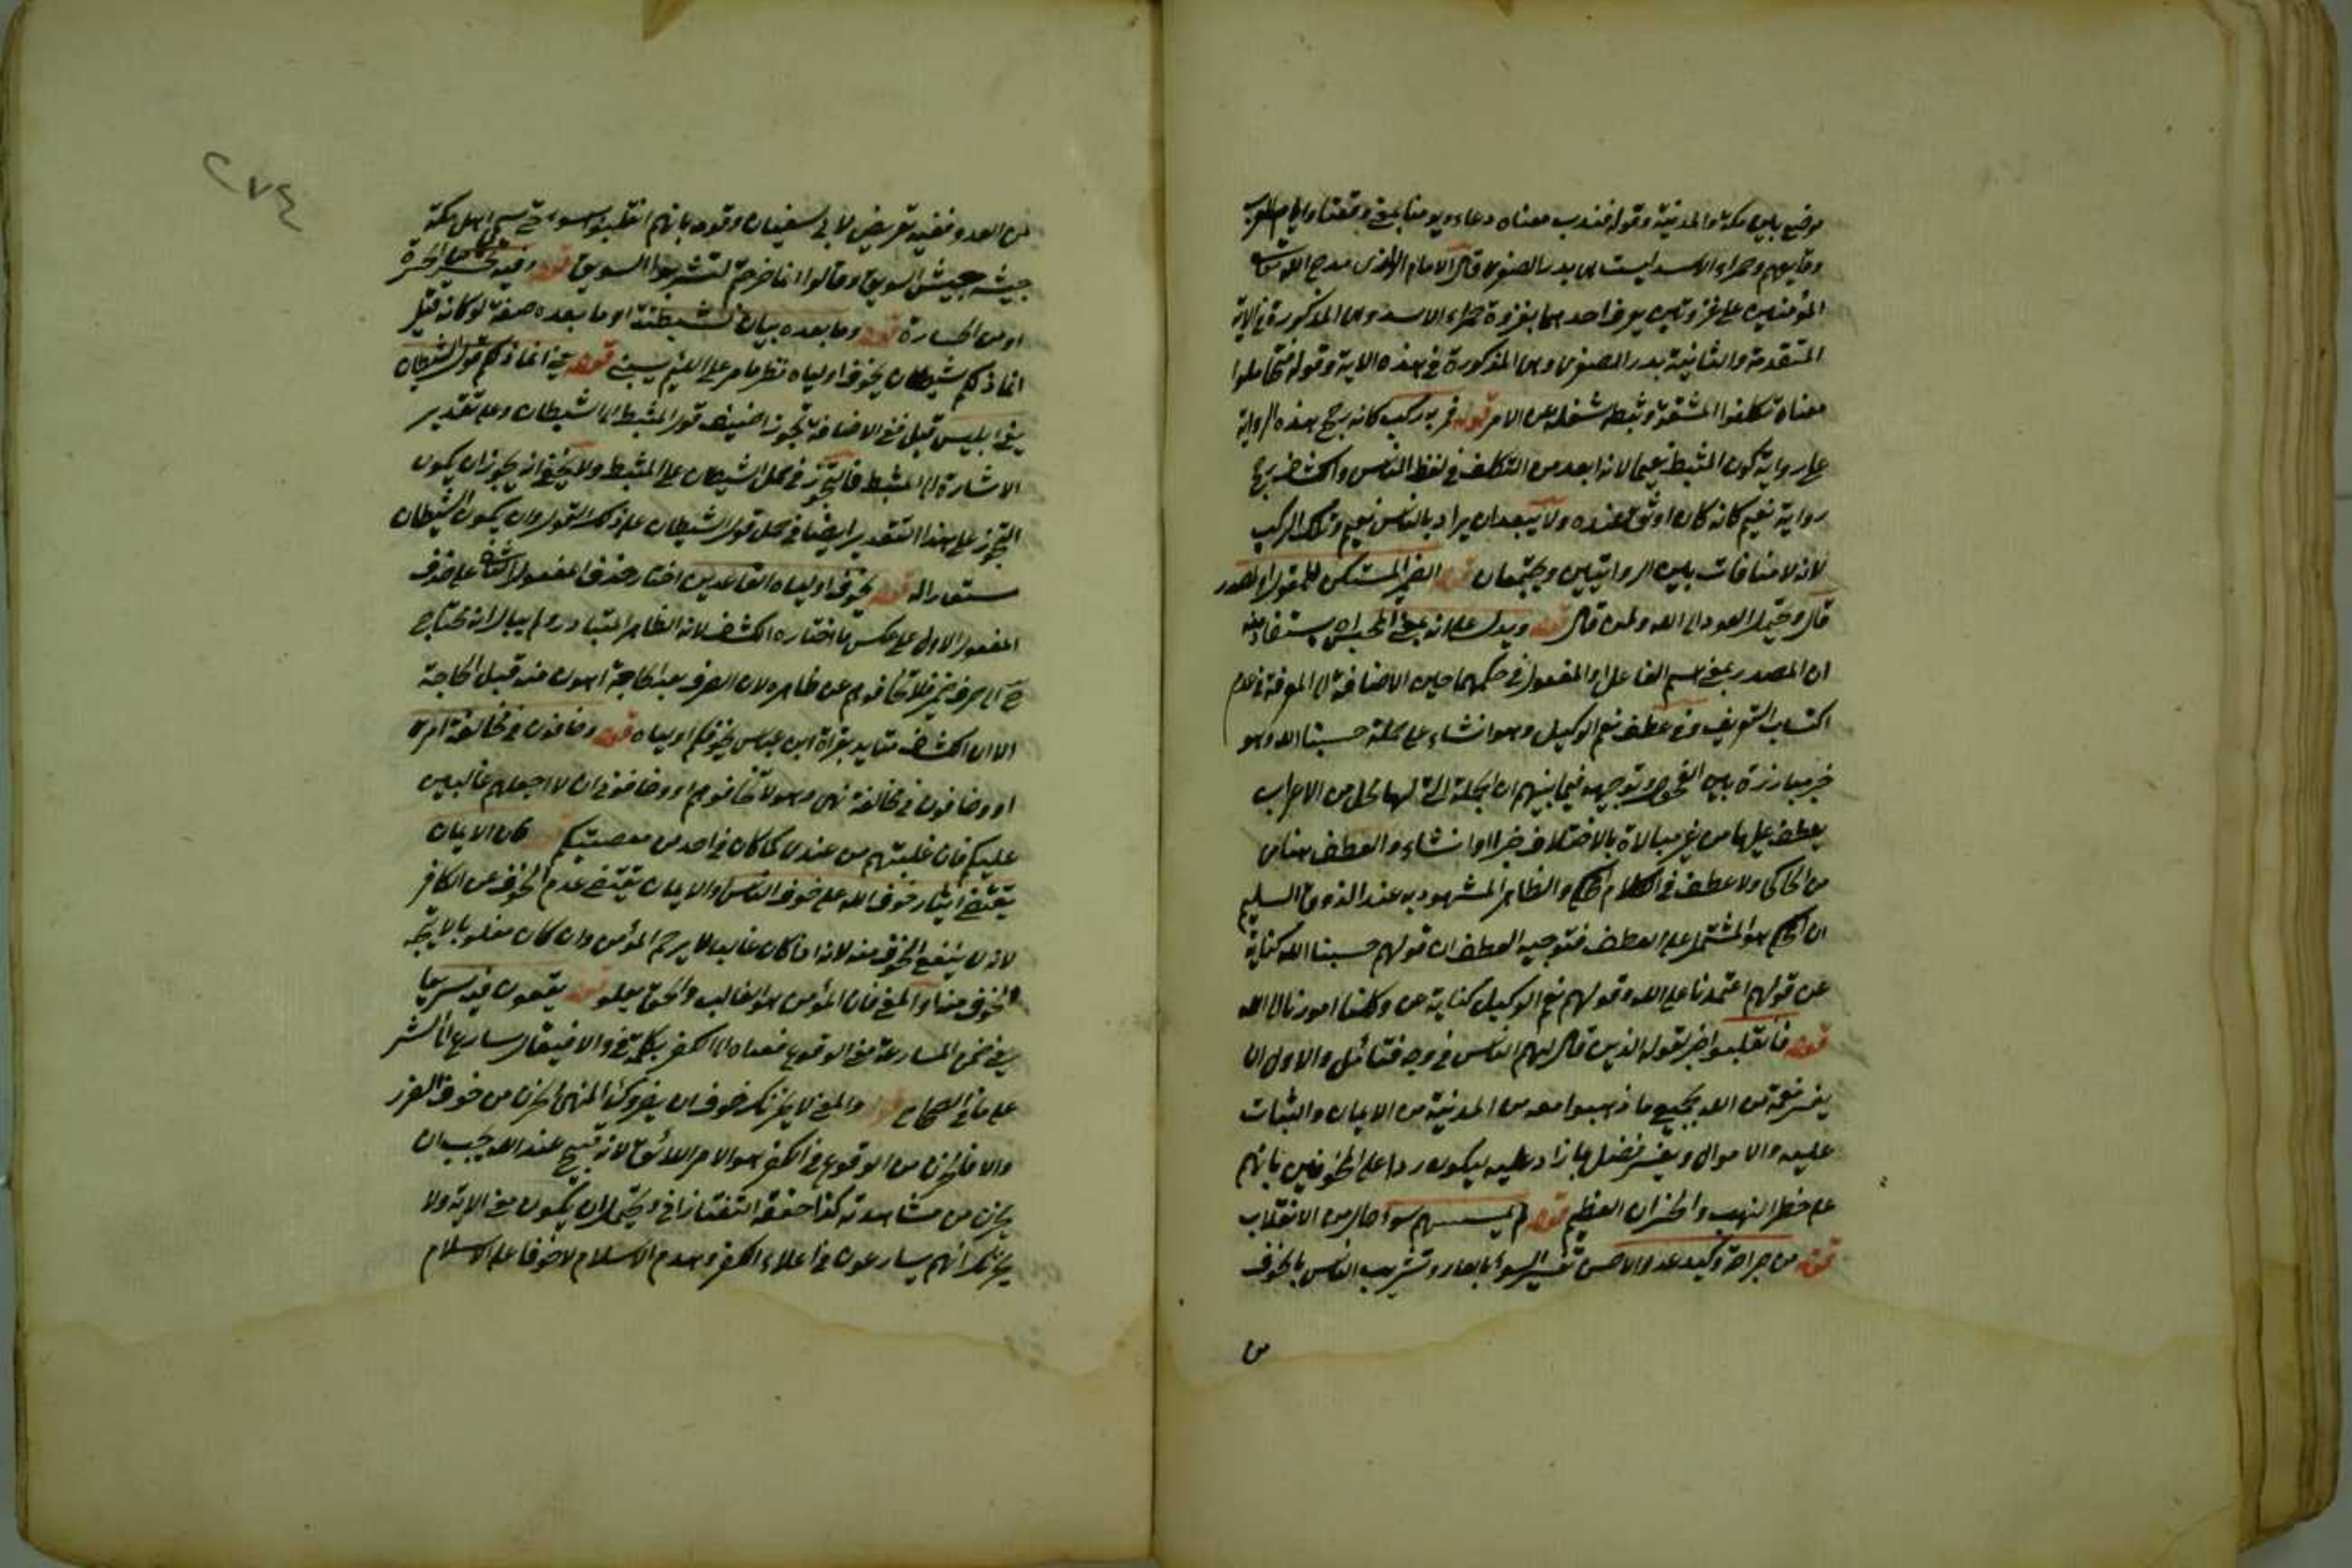 موضع بين مكة والمدينة وقوله فندب معناه دعاء ويومنا بمعنى وقعتنا وايام العرب
وقايعهم وحمراء الاسد ليست هي بدر الصغرى قال الامام الرازى مدح الله تعالى
المؤمنين على غزوتين يعرف احدهما بغزوة حمراء الاسد وهي المذكورة في الاية
المتقدمة والثانية بدر الصغرى وهي المذكورة في هذه الاية وقوله فتحاملوا
معناه تكلفوا المشقة وثبطه شغله عن الامر قوله فمر به ركب كانه رجح هذه الرواية
على رواية كون المثبط نعيما لانه ابعد من التكلف في لفظ الناس والكشاف رجح
رواية نعيم كانه كان اوثق عنده ولا يبعد ان يراد بالناس نعيم وذلك الركب
لانه لا منافات بين الروايتين ويجتمعان قوله الضمير المستكن للمقول او لمصدر
قال ويحتمل العود الى الله ولمن قال قوله ويدل على انه بمعنى المحسب اه يستفاد منه
ان المصدر بمعنى اسم الفاعل او المفعول في حكمهما حين الاضافة الى المعرفة في عدم
اكتساب التعريف وفي عطف نعم الوكيل وهو انشاء على جملة حسبنا الله وهو
خبر مبارزة بين الفحول وتوجيهه فيما بينهم ان الجملة التي لها محل من الاعراب
يعطف عليها من غير مبالاة بالاختلاف خبرا او انشاء والعطف هنا من
من الحاكى ولا عطف في الكلام المحكي والظاهر المشهود به عند الذوق السليم
ان المحكي هو المشتمل على العطف فتوجيه العطف ان قولهم حسبنا الله كناية
عن قولهم اعتمدنا على الله وقولهم نعم الوكيل كناية عن وكلنا امورنا الى الله
قوله فانقلبوا خبر لقوله الذين قال لهم الناس في وجه فتأمل والاولى ان
يفسر نعمة من الله بجميع ما ذهبوا معه من المدينة من الايمان والثبات
عليه والاموال ويفسر فضل بما زاد عليه ليكون ردا على المخوفين بانهم
على خطر النهب والخسران العظيم قوله لم يمسسهم سوء حال من الانقلاب
قوله من جراحة وكيد عدو والاحسن تفسير السوء بالعار وتثريب الناس بالخوف
من
٢٧٤
من العدو ففيه تعريض لابي سفيان وقومه بانهم انقلبوا بسوء حتى سمى اهل مكة
جيشه جيش السويق وقالوا انما خرجتم لتشربوا السويق قوله وفيه تحسير من الحسرة
او من الخسارة قوله وما بعده بيان لشيطنته او ما بعده صفة لو كانه قيل
انما ذلكم شيطان يخوف اولياه نظر ما مر على اللئيم يسبني قوله يعنى انما ذلكم قول الشيطان
يعنى ابليس قيل فمع الاضافة تجوز اضيف قول المثبط الى الشيطان وعلى تقدير
الاشارة الى المثبط فالتجوز في حمل الشيطان على المثبط ولا يخفى انه يجوز ان يكون
التجوز على هذا التقدير ايضا في حمل قول الشيطان على ذلك القول وان يكون الشيطان
مستعارا له قوله يخوف اولياه القاعدين اختار حذف المفعول الثاني على حذف
المفعول الاول على عكس ما اختاره الكشاف لانه الظاهر المتبادر ولم يبال انه يحتاج
ح الى صرف ضمير فلا تخافوهم عن ظاهره لان الصرف بعد الحاجة اهون منه قبل الحاجة
الا ان الكشاف متايد بقراة ابن عباس يخوفكم اولياه قوله وخافون في مخالفة امرى
او وخافون في مخالفة نهى وهو لا تخافوهم او وخافوني ان لا اجعلهم غالبين
عليكم فان غلبتهم من عندى كما كان في احد من معصيتكم قوله فان الايمان
يقتضى ايثار خوف الله على خوف الناس او الايمان يقتضى عدم الخوف عن الكافر
لانه لا ينفع الخوف منه لانه اذا كان غالبا لا يرحم المؤمن وان كان مغلوبا لا يتجه
الخوف منه او المعنى فان المؤمن هو الغالب والحق يعلو قوله يقعون فيه سريعا
يعنى ضمن المسارعة معنى الوقوع فمعناه الى الكفر بكلمة في والا فيقال سارع الى الشر
على ما في الصحاح قوله والمعنى لا يحزنك خوف ان يضروك اذ المنهى الحزن من خوف الضرر
والا فالحزن من الوقوع في الكفر هو الامر اللائق لانه قبيح عند الله يجب ان
يحزن من مشاهدته كذا حققه التفتازاني ويحتمل ان يكون معنى الاية ولا
يحزنك انهم يسارعون في اعلاء الكفر وهدم الاسلام لا خوفا على الاسلام